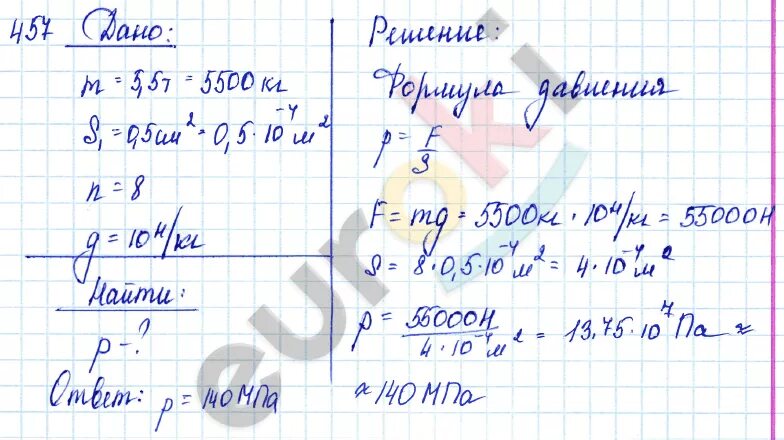 457 Дано:
m = 5,5т = 5500 кг
S₁ = 0,5 см² = 0,5·10⁻⁴ м²
n = 8
g = 10 Н/кг
Найти:
p - ?
Ответ: p = 140 МПа
Решение:
Формула давления
p = F/S
F = mg = 5500 кг · 10 Н/кг = 55000 Н
S = 8·0,5·10⁻⁴ м² = 4·10⁻⁴ м²
p = 55000 Н / 4·10⁻⁴ м² = 13,75·10⁷ Па ≈
≈ 140 МПа
euroki